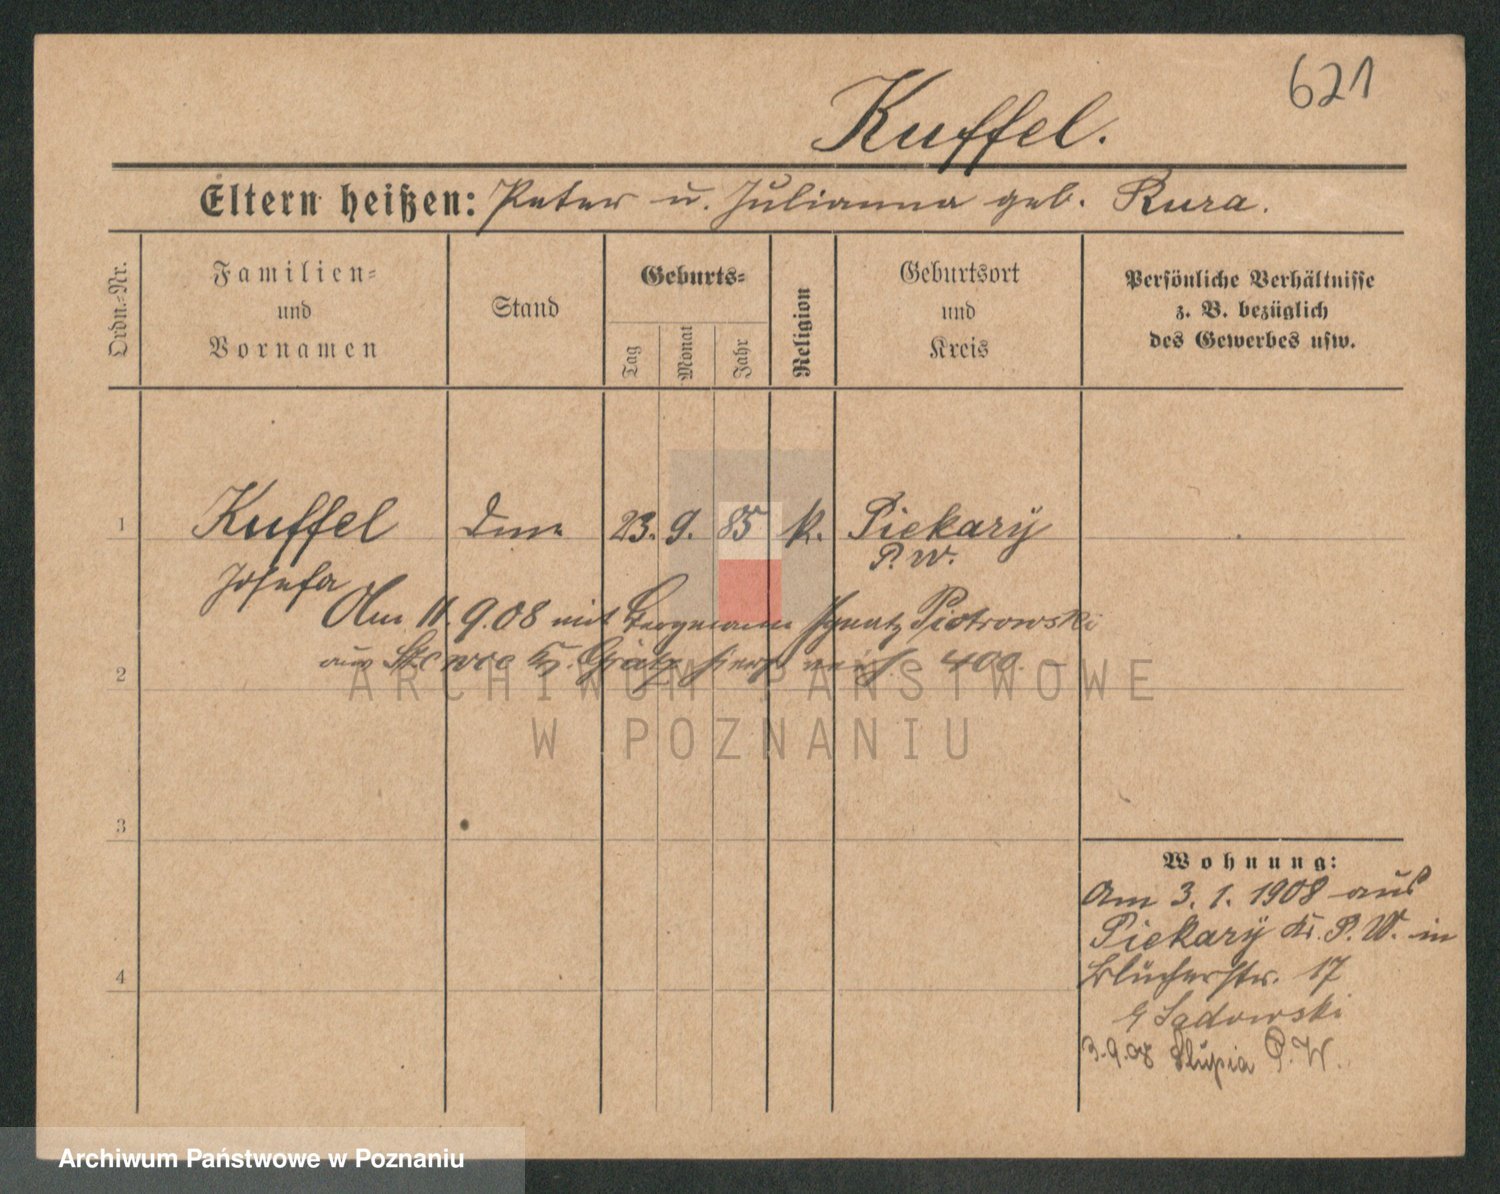 621
Kuffel.
Eltern heißen: Peter u. Julianna geb. Kura.
Ordn.-Nr.
Familien-
und
Vornamen
Stand
Geburts-
Tag
Monat
Jahr
Religion
Geburtsort
und
Kreis
Persönliche Verhältnisse
z. B. bezüglich
des Gewerbes usw.
1 Kuffel 23. 9. 85 k. Piekary
P. W.
Josefa
Am 11.9.08 mit Bergmann Ignatz Piotrowski
aus Grätz 400.
2
ARCHIWUM PAŃSTWOWE
W POZNANIU
3
4
Wohnung:
Am 3. 1. 1908 aus
Piekary Kr. P. W. in
Blücherstr. 17
Sadowski
3.9.08 Słupia P. W.
Archiwum Państwowe w Poznaniu